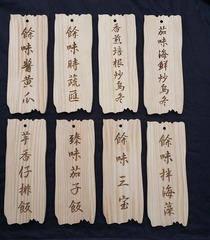 餘味醬黃瓜
餘味時蔬匯
香煎培根炒烏冬
茄味海鮮炒烏冬
芋香仔排飯
臻味茄子飯
餘味三宝
餘味拌海藻